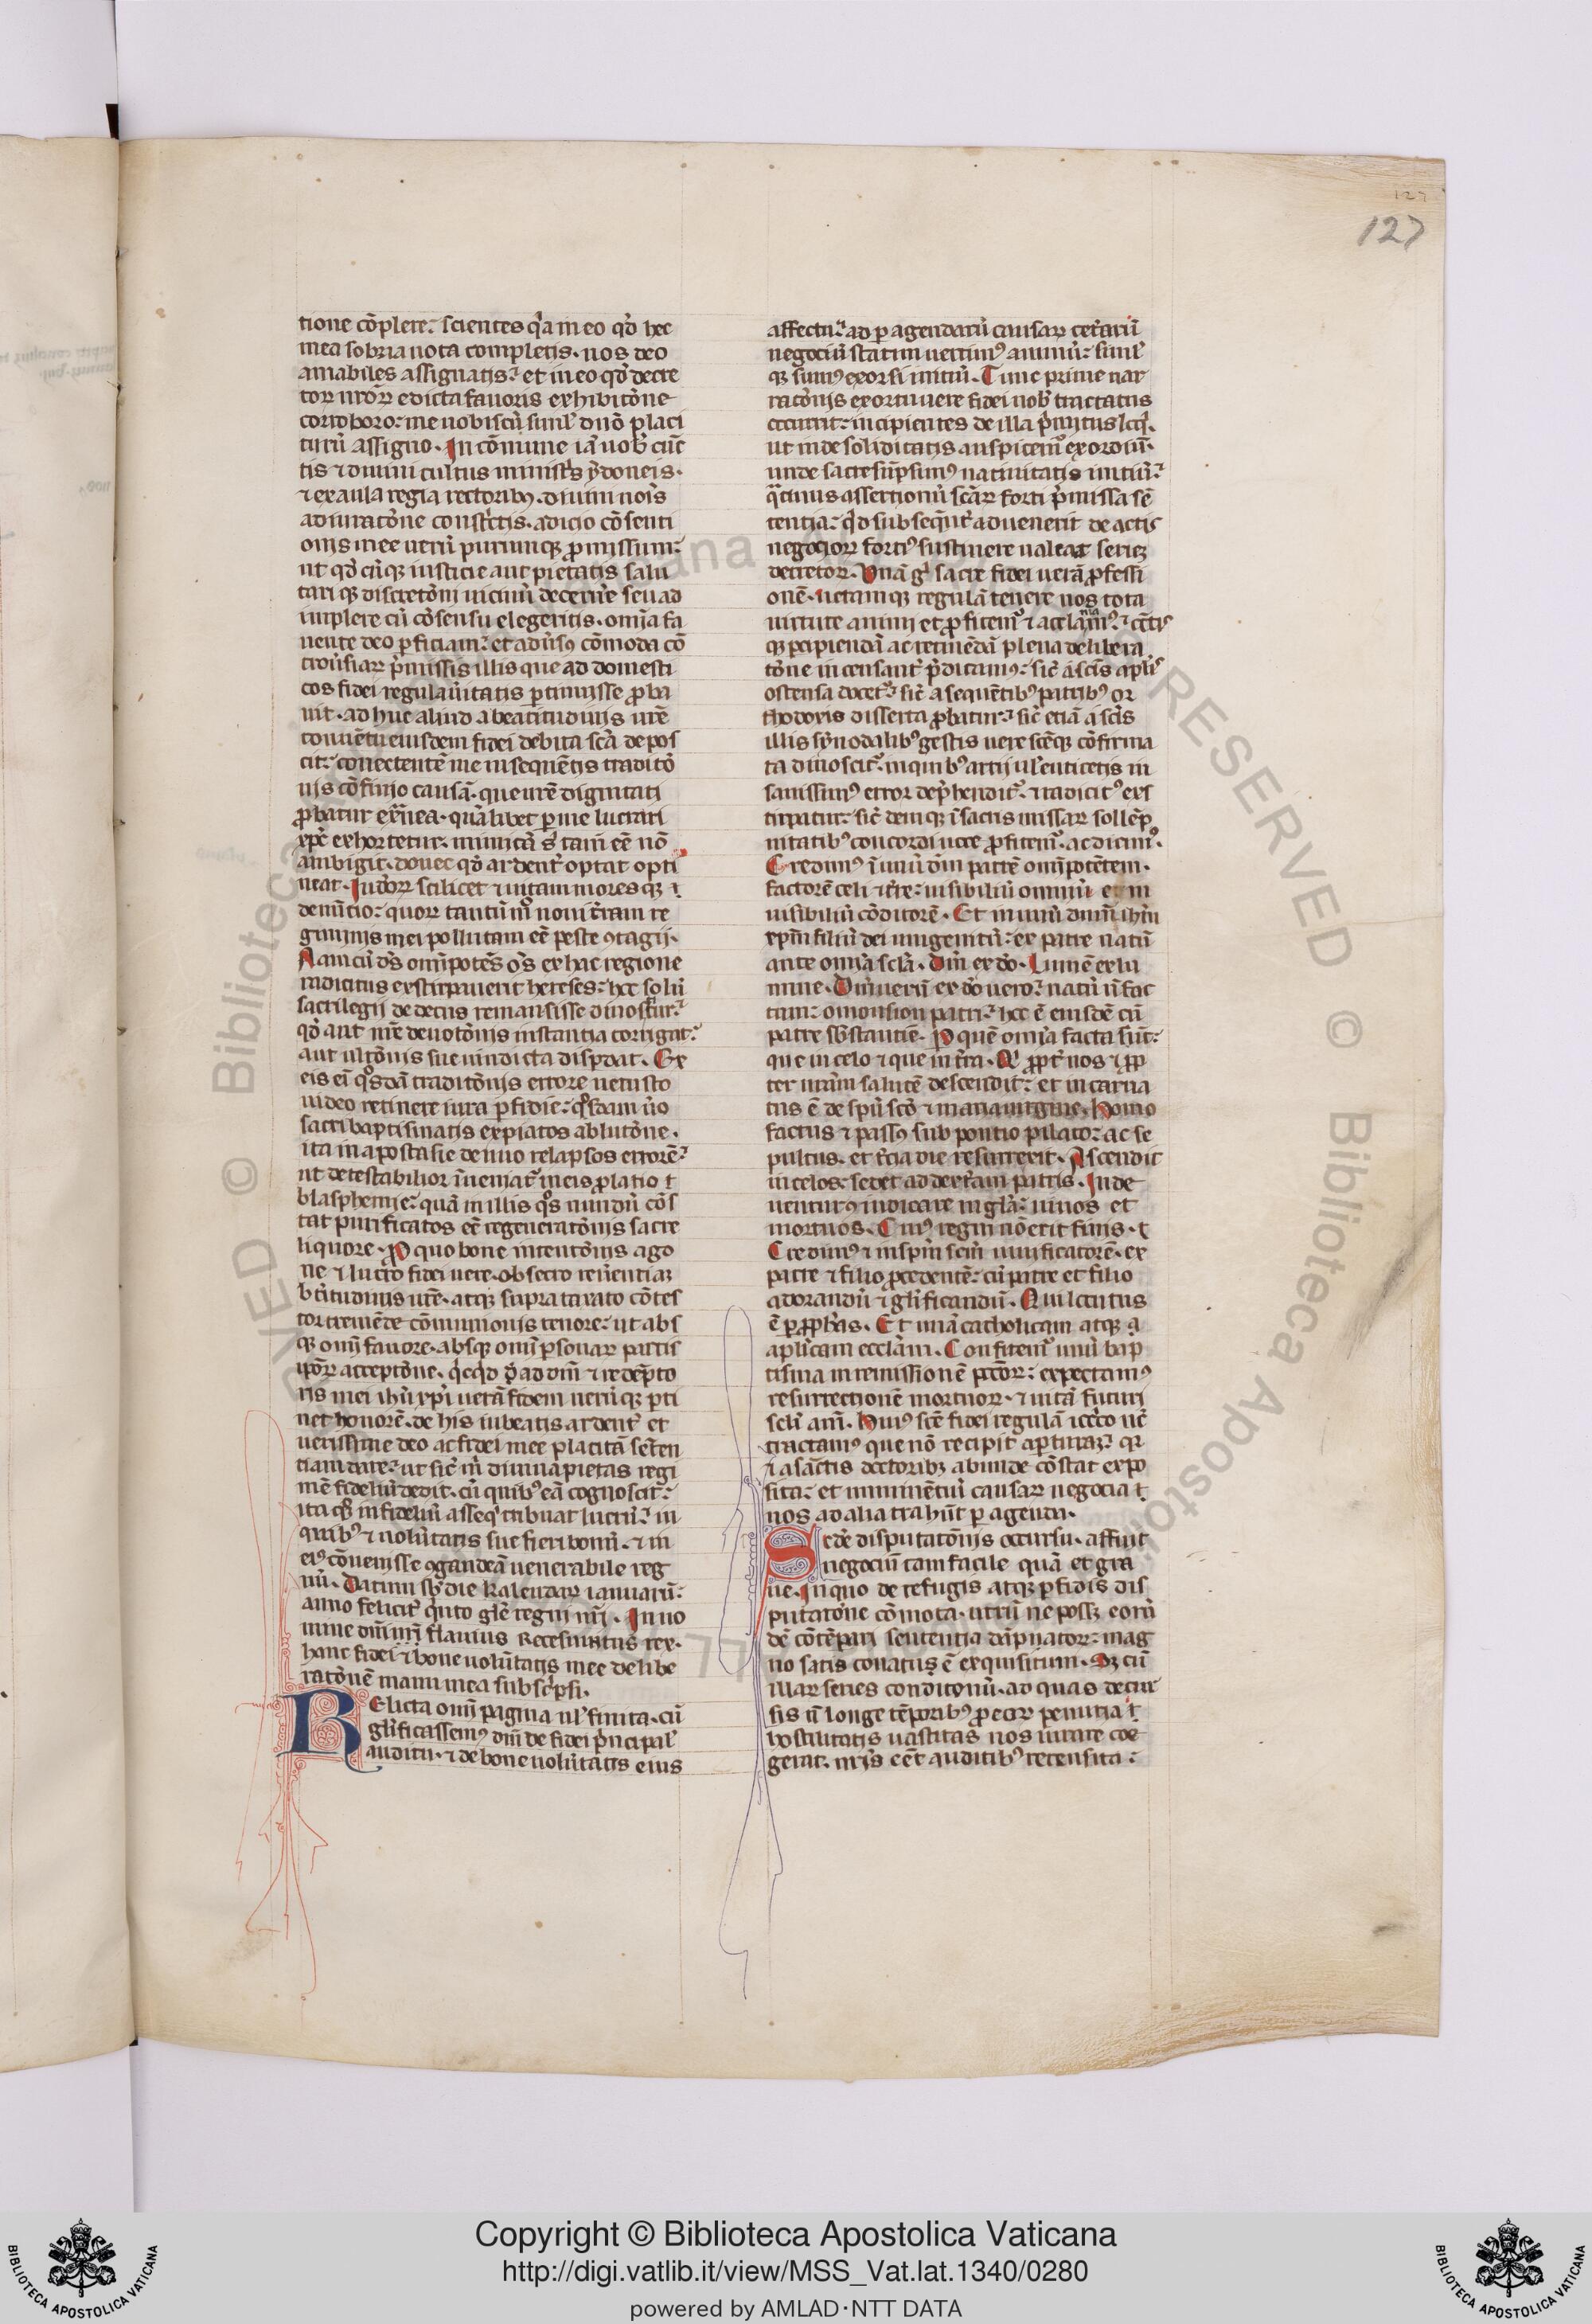 127
127
tione cōplere. scientes qa in eo qd hec
mea sobria uota completis. nos deo
amabiles assignatis. et in eo qd decre
tor uror edicta fauoris exhibitōne
corroboro. me uobiscū siml dnō placi
turū assigno. In cōmune iā uob cunc
tis ⁊ diuini cultus ministris ydoneis.
⁊ ex aula regia rectoribꝫ. diuini nois
adiuratōne constrictis. adicio cōsenti
onis mee uerū purumqꝫ promissum.
ut qd cūqꝫ iusticie aut pietatis salu
tari qꝫ discretōni uicinū decernere seu ad
implere cū cōsensu elegeritis. omia fa
uente deo perficiam. et aduersus cōmoda cō
trouersiar premissis illis que ad domesti
cos fidei regula unitatis pertinuisse proba
uit. ad huc aliud a beatitudinis ure
conuentu eiusdem fidei debita scā depos
cit. conectentē me in sequētis traditō
nis cōfinio causā. que ure dignitati
probatur externea. quālibet per me lucrari
xpc exhortetur. inimicā s tam eē nō
ambigit. donec qd ardent optat opti
neat. Iudeor scilicet ⁊ uitam moresqꝫ ⁊
denūtio. quor tantūm noui tram re
giminis mei pollutam eē peste ɔtagii.
Nam cū ds omipotēs os ex hac regione
radicitus exstirpauerit hereses. hec solū
sacrilegii dedecus remansisse dinoscitur.
qd aut ure deuotōnis instantia corrigat.
aut ultōnis sue uindicta disperdat. Ex
eis ei qosdā traditōnis errore uetusto
uideo retinere iura perfidie. qosdam uo
sacri baptismatis expiatos ablutōne.
ita in apostasie denuo relapsos errorē.
ut detestabilior inueniat in eis prolatio ⁊
blasphemie. quā in illis qos nundū cōs
tat purificatos eē regeneratōnis sacre
liquore. Pro quo bone intentōnis ago
ne ⁊ lucro fidei uere. obsecro reuerentiaꝫ
btitudinis ure. atqꝫ supra taxato cōtes
tor tremēde cōmunionis tenore. ut abs
qꝫ omi fauore. absqꝫ omi personar partis
ipor acceptōne. qcqd ad dm ⁊ redēpto
ris mei ihu xpi uerā fidem uerūqꝫ perti
net honorē. de his iubeatis ardent et
uerissime deo ac fidei mee placitā senten
tiam dare. ut sic m diuina pietas regi
mē fideliū dedit. cū quibꝰ eā cognoscit.
ita qs infideliū asseq tribuat lucrū. in
quibꝰ ⁊ uolūtatis sue fieri bonū. ⁊ in
eiꝰ cōuenisse ɔgaudeā uenerabile reg
nū. Datum sb die kalendar ianuariū.
anno felicit qinto gle regni nri. In no
mine dni nri flauius Recesuintus rex.
hanc fidei ⁊ bone uolūtatis mee delibe
ratōnē manu mea subscripsi.
Relicta omi pagina ul finita. cū
glificassemꝰ dm de fidei principal
auditu. ⁊ de bone uolūtatis eius
affectu. ad peragendarū causar ceterarū
negociū statim uertimꝰ animū. siml
qꝫ sumꝰ exorsi initiū. Tunc prime nar
ratōnis exortu uere fidei nob tractatus
occurrit. incipientes de illa primitus loqi.
ut inde soliditatis auspicemꝰ exordiū.
unde sacre sūpsimꝰ natiuitatis initiū.
qatinus assertionū scar forti premissa sē
tentia. qd subsequent aduenerit de actis
negotior fortiꝰ sustinere ualeat seriem
decretor. Vnā gi sacre fidei uerā professi
onē. uetamqꝫ regulā tenere nos tota
uirtute animi et profitemꝰ ⁊ acclamamꝰ. ⁊ cētis
qꝫ percipiendā ac retinēdā plena delibera
tōne incensant predicamꝰ. sic a scis aplis
ostensa docet. sic a sequētibꝰ patribꝰ or
thodoxis disserta probatur. sic etiā a scis
illis synodalibꝰ gestis uere scēqꝫ cōfirma
ta dinoscit. in quibꝰ arrii ul euticetis in
sanissimꝰ error deprehendit. ⁊ radicitꝰ exs
tirpatur. sic deniqꝫ i sacris missar sollēp
nitatibꝰ concordi uoce profitemꝰ. ac dicimꝰ.
Credimꝰ i unū dm patrē omipotētem.
factorē celi ⁊ terre. uisibiliū omniū et in
uisibiliū cōditorē. Et in unū dnm ihm
xpm filiū dei unigenitū. ex patre natū
ante omia scla. Dm ex do. Lumē ex lu
mine. Dm uerū ex do uero. natū n fac
tum. omousion patri. hoc ē eiusdē cū
patre substantie. Per quē omia facta sūt.
que in celo ⁊ que in tra. Qi propt nos ⁊ prop
ter nram salutē descendit. et incarna
tus ē de spu sco ⁊ maria uirgine. Homo
factus ⁊ passꝰ sub pontio pilato. ac se
pultus. et tercia die resurrexit. Ascendit
in celos. sedet ad dexteram patris. Inde
uenturꝰ iudicare in gla. uiuos et
mortuos. Cuiꝰ regni nō erit finis. ⁊
Credimꝰ ⁊ in spm scm uiuificatorē. ex
patre ⁊ filio procedentē. cū patre et filio
adorandū ⁊ glificandū. Qui locutus
ē per prophetas. Et unā catholicam atqꝫ a
aplicam ecclam. Confitemꝰ unū bap
tisma in remissionē peccator. expectamꝰ
resurrectionē mortuor. ⁊ uitā futuri
scli am. Huiꝰ scē fidei regulā icrco ue
tractamꝰ que nō recipit aperturaꝫ. qr
⁊ a sanctis doctoribꝫ abunde cōstat expo
sita. et imminētiū causar negocia ⁊
nos ad alia trahūt peragenda.
Sede disputatōnis occursu. affuit
negociū tam facile quā et gra
ue. In quo de refugis atqꝫ perfidis dis
putatōne cōmota. utrū ne possꝫ eorū
dē cōtēpari sententia dāpnator. mag
no satis conatus ē exquisitum. Sꝫ cū
illar series conditonū. ad quas decur
sis n longe tēporibꝰ pro ear penuria ⁊
hostilitatis uastitas nos iurare coe
gerat. nris eēt auditibꝰ recensita.
Copyright © Biblioteca Apostolica Vaticana
http://digi.vatlib.it/view/MSS_Vat.lat.1340/0280
powered by AMLAD·NTT DATA
BIBLIOTECA APOSTOLICA VATICANA
BIBLIOTECA APOSTOLICA VATICANA